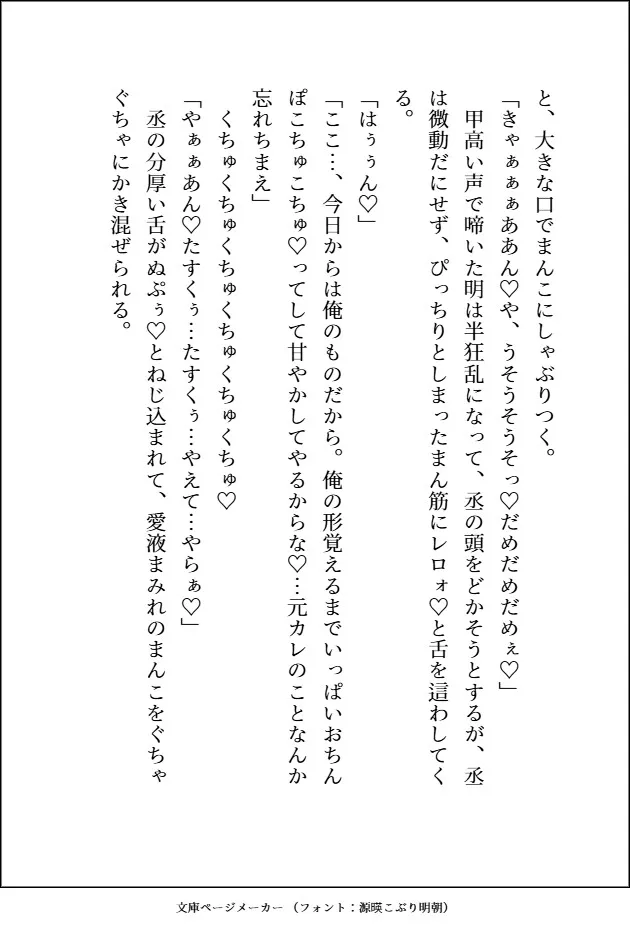 と、大きな口でまんこにしゃぶりつく。
「きゃぁぁぁああん♡や、うそうそうそっ♡だめだめだめぇ♡」
　甲高い声で啼いた明は半狂乱になって、丞の頭をどかそうとするが、丞
は微動だにせず、ぴっちりとしまったまん筋にレロォ♡と舌を這わしてく
る。
「はぅぅん♡」
「ここ…、今日からは俺のものだから。俺の形覚えるまでいっぱいおちん
ぽこちゅこちゅ♡ってして甘やかしてやるからな♡…元カレのことなんか
忘れちまえ」
　くちゅくちゅくちゅくちゅくちゅくちゅ♡
「やぁぁあん♡たすくぅ…たすくぅ…やえて…やらぁ♡」
　丞の分厚い舌がぬぷぅ♡とねじ込まれて、愛液まみれのまんこをぐちゃ
ぐちゃにかき混ぜられる。
文庫ページメーカー（フォント：源暎こぶり明朝）